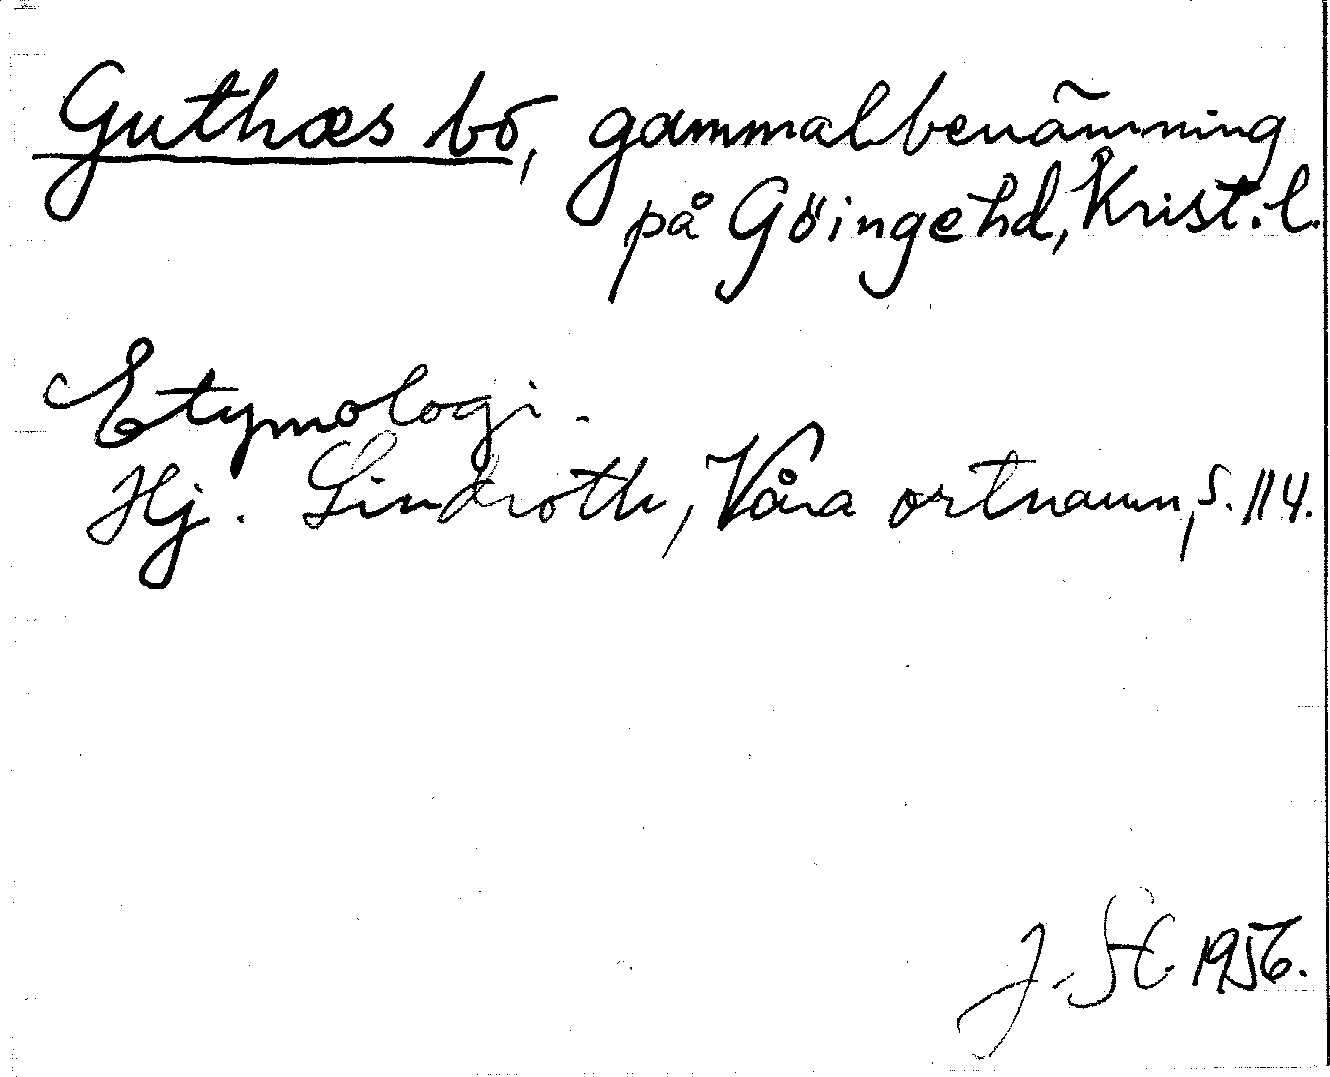 Guthæs bo, gammal benämning
på Göingehd, Krist. l.
Etymologi.
Hj. Lindroth, Våra ortnamn, s. 114.
1956.